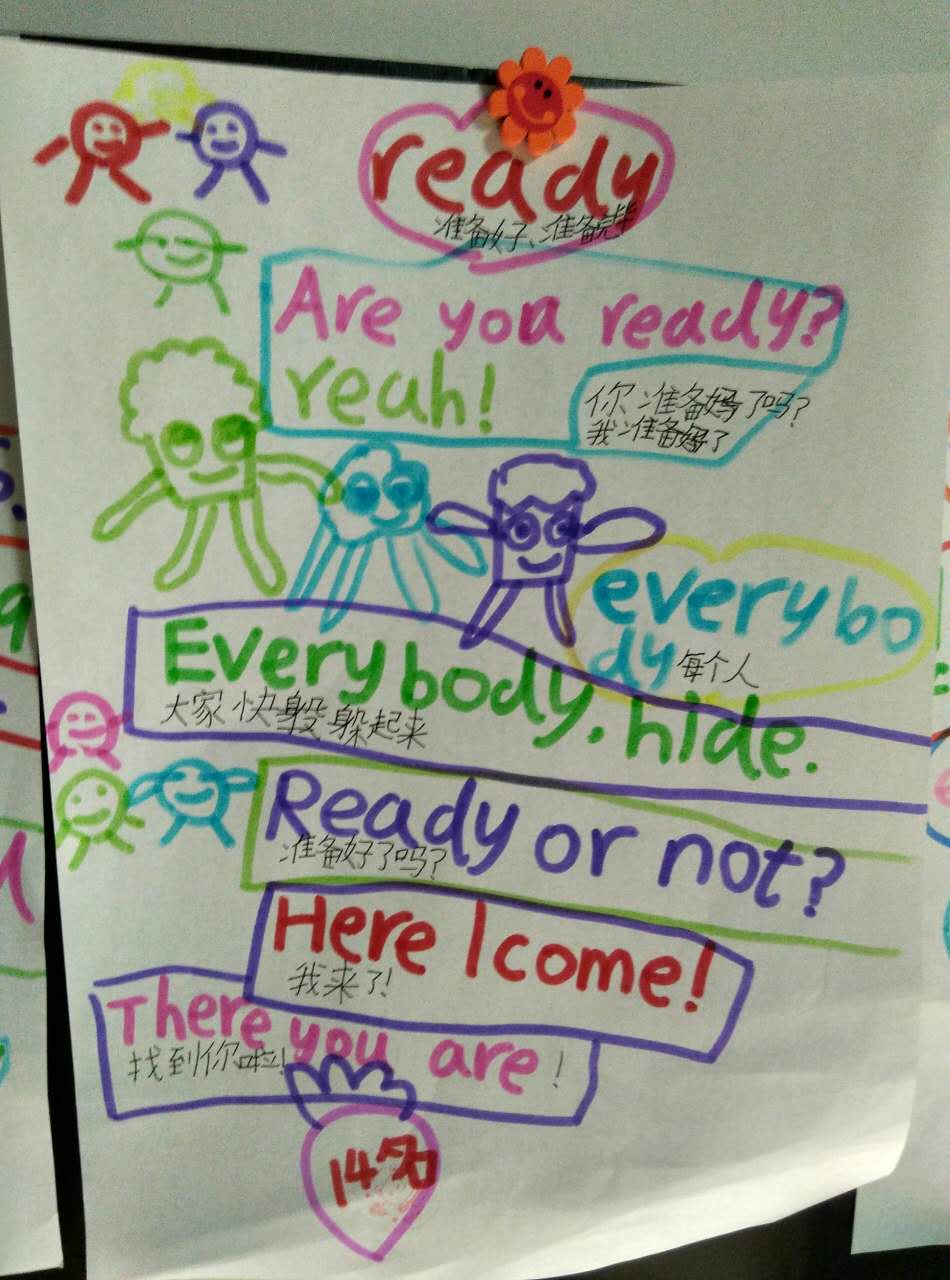 ready
准备好、准备完毕
Are you ready?
Yeah!
你准备好了吗?
我准备好了
everybo
dy 每个人
Everybody. hide.
大家快躲躲起来
Ready or not?
准备好了吗?
Here I come!
我来了!
There you are!
找到你啦!
14名